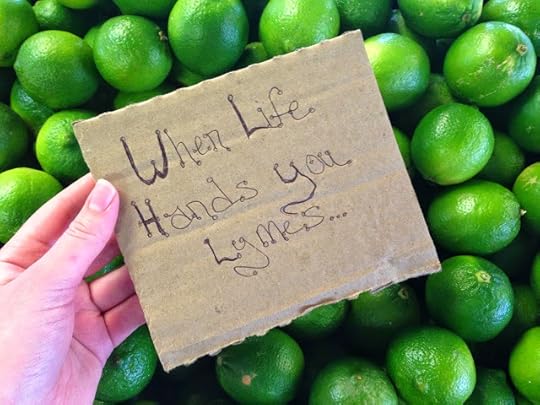 When Life
Hands you
Lymes...